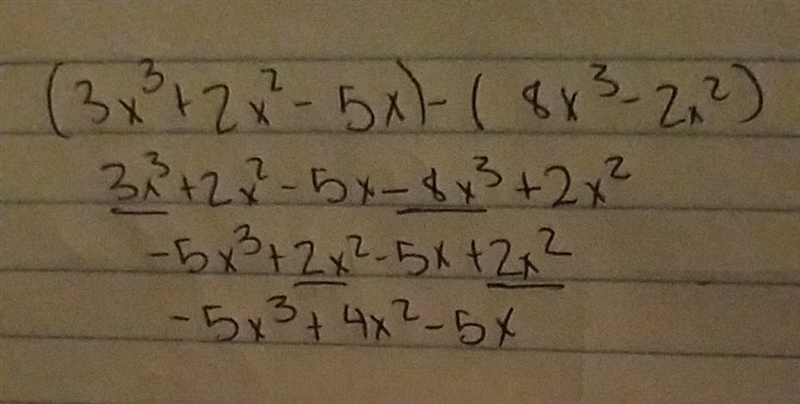 (3x³+2x²-5x)-(8x³-2x²)
3x³+2x²-5x-8x³+2x²
-5x³+2x²-5x+2x²
-5x³+4x²-5x